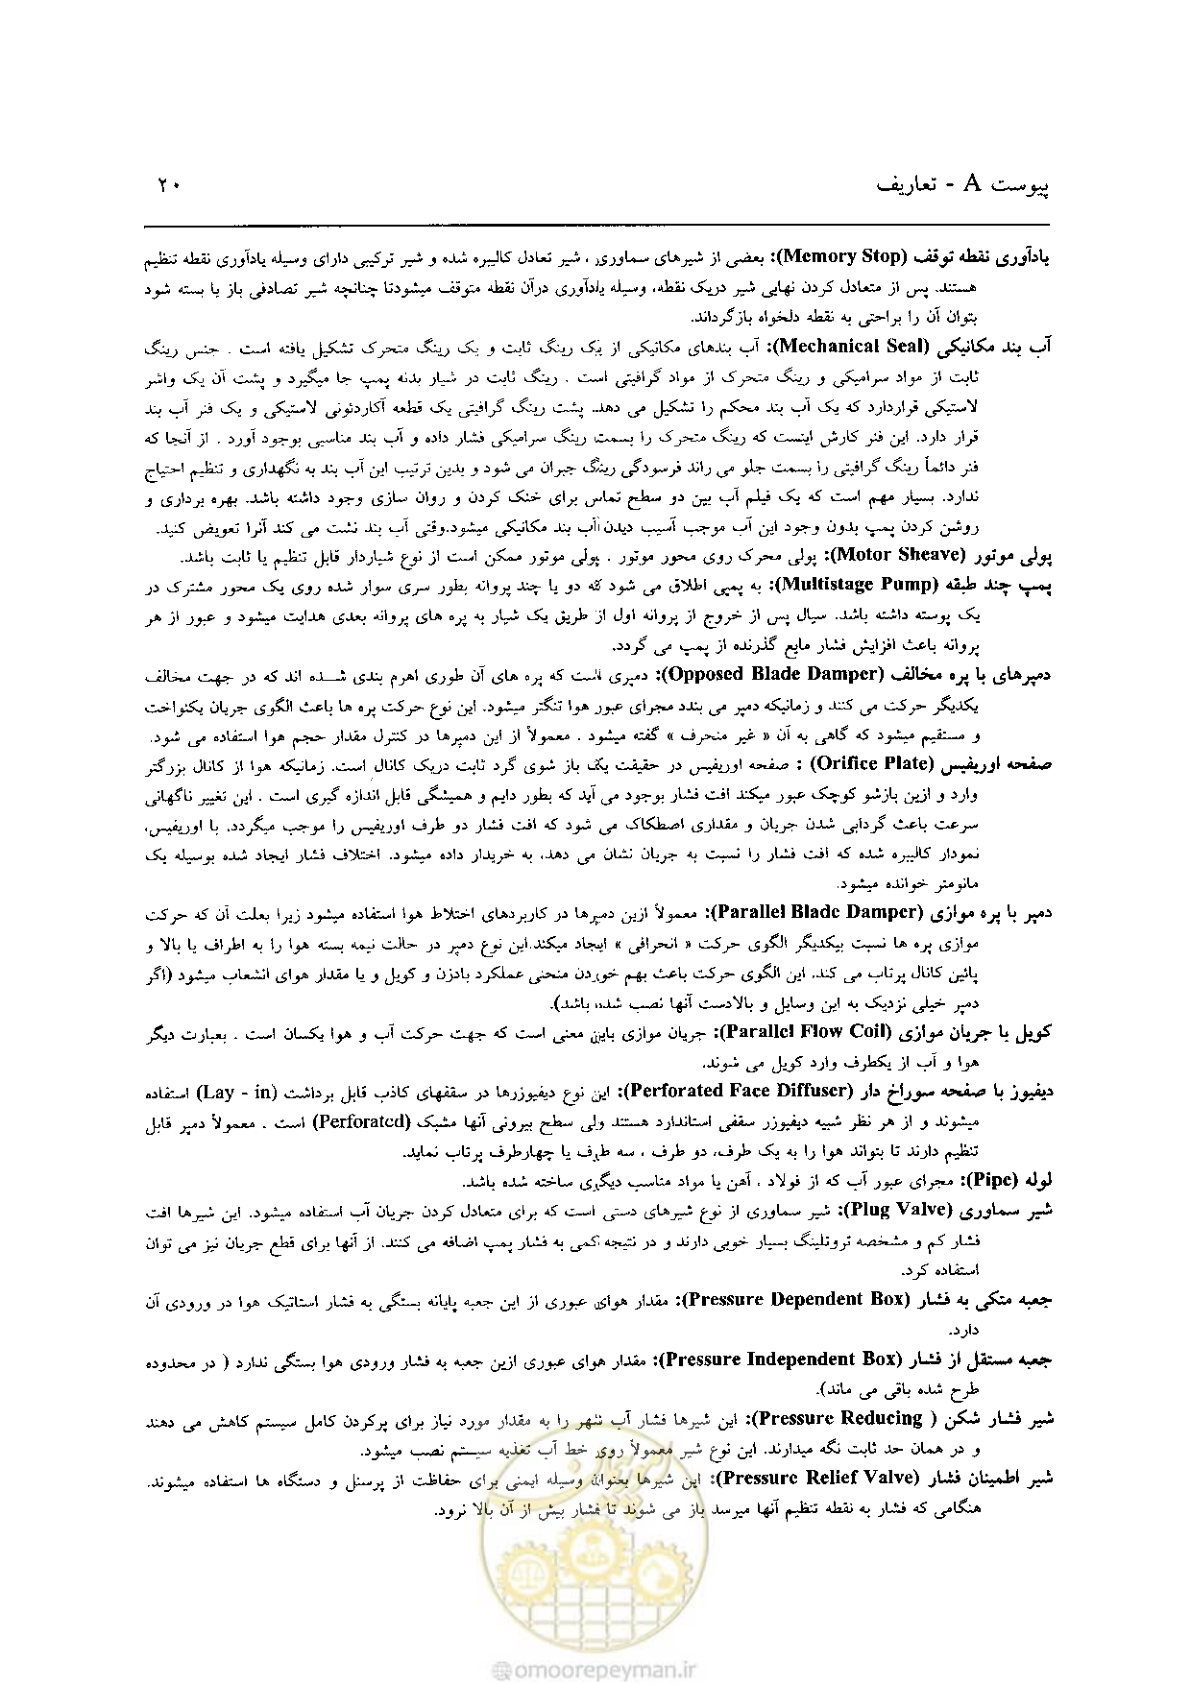 پیوست A - تعاریف
۲۰
یادآوری نقطه توقف (Memory Stop): بعضی از شیرهای سماوری ، شیر تعادل کالیبره شده و شیر ترکیبی دارای وسیله یادآوری نقطه تنظیم
هستند. پس از متعادل کردن نهایی شیر دریک نقطه، وسیله یادآوری درآن نقطه متوقف میشودتا چنانچه شیر تصادفی باز یا بسته شود
بتوان آن را براحتی به نقطه دلخواه بازگرداند.
آب بند مکانیکی (Mechanical Seal): آب بندهای مکانیکی از یک رینگ ثابت و یک رینگ متحرک تشکیل یافته است . جنس رینگ
ثابت از مواد سرامیکی و رینگ متحرک از مواد گرافیتی است . رینگ ثابت در شیار بدنه پمپ جا میگیرد و پشت آن یک واشر
لاستیکی قراردارد که یک آب بند محکم را تشکیل می دهد. پشت رینگ گرافیتی یک قطعه آکاردئونی لاستیکی و یک فنر آب بند
قرار دارد. این فنر کارش اینست که رینگ متحرک را بسمت رینگ سرامیکی فشار داده و آب بند مناسبی بوجود آورد . از آنجا که
فنر دائماً رینگ گرافیتی را بسمت جلو می راند فرسودگی رینگ جبران می شود و بدین ترتیب این آب بند به نگهداری و تنظیم احتیاج
ندارد. بسیار مهم است که یک فیلم آب بین دو سطح تماس برای خنک کردن و روان سازی وجود داشته باشد. بهره برداری و
روشن کردن پمپ بدون وجود این آب موجب آسیب دیدن آب بند مکانیکی میشود.وقتی آب بند نشت می کند آنرا تعویض کنید.
پولی موتور (Motor Sheave): پولی محرک روی محور موتور . پولی موتور ممکن است از نوع شیاردار قابل تنظیم یا ثابت باشد.
پمپ چند طبقه (Multistage Pump): به پمپی اطلاق می شود که دو یا چند پروانه بطور سری سوار شده روی یک محور مشترک در
یک پوسته داشته باشد. سیال پس از خروج از پروانه اول از طریق یک شیار به پره های پروانه بعدی هدایت میشود و عبور از هر
پروانه باعث افزایش فشار مایع گذرنده از پمپ می گردد.
دمپرهای با پره مخالف (Opposed Blade Damper): دمپری است که پره های آن طوری اهرم بندی شده اند که در جهت مخالف
یکدیگر حرکت می کنند و زمانیکه دمپر می بندد مجرای عبور هوا تنگتر میشود. این نوع حرکت پره ها باعث الگوی جریان یکنواخت
و مستقیم میشود که گاهی به آن « غیر منحرف » گفته میشود . معمولاً از این دمپرها در کنترل مقدار حجم هوا استفاده می شود.
صفحه اوریفیس (Orifice Plate) : صفحه اوریفیس در حقیقت یک باز شوی گرد ثابت دریک کانال است. زمانیکه هوا از کانال بزرگتر
وارد و ازین بازشو کوچک عبور میکند افت فشار بوجود می آید که بطور دایم و همیشگی قابل اندازه گیری است . این تغییر ناگهانی
سرعت باعث گردابی شدن جریان و مقداری اصطکاک می شود که افت فشار دو طرف اوریفیس را موجب میگردد. با اوریفیس،
نمودار کالیبره شده که افت فشار را نسبت به جریان نشان می دهد، به خریدار داده میشود. اختلاف فشار ایجاد شده بوسیله یک
مانومتر خوانده میشود.
دمپر با پره موازی (Parallel Blade Damper): معمولاً ازین دمپرها در کاربردهای اختلاط هوا استفاده میشود زیرا بعلت آن که حرکت
موازی پره ها نسبت بیکدیگر الگوی حرکت « انحرافی » ایجاد میکند.این نوع دمپر در حالت نیمه بسته هوا را به اطراف یا بالا و
پائین کانال پرتاب می کند. این الگوی حرکت باعث بهم خوردن منحنی عملکرد بادزن و کویل و یا مقدار هوای انشعاب میشود (اگر
دمپر خیلی نزدیک به این وسایل و بالادست آنها نصب شده باشد).
کویل با جریان موازی (Parallel Flow Coil): جریان موازی باین معنی است که جهت حرکت آب و هوا یکسان است . بعبارت دیگر
هوا و آب از یکطرف وارد کویل می شوند.
دیفیوز با صفحه سوراخ دار (Perforated Face Diffuser): این نوع دیفیوزرها در سقفهای کاذب قابل برداشت (Lay - in) استفاده
میشوند و از هر نظر شبیه دیفیوزر سقفی استاندارد هستند ولی سطح بیرونی آنها مشبک (Perforated) است . معمولاً دمپر قابل
تنظیم دارند تا بتواند هوا را به یک طرف، دو طرف ، سه طرف یا چهارطرف پرتاب نماید.
لوله (Pipe): مجرای عبور آب که از فولاد ، آهن یا مواد مناسب دیگری ساخته شده باشد.
شیر سماوری (Plug Valve): شیر سماوری از نوع شیرهای دستی است که برای متعادل کردن جریان آب استفاده میشود. این شیرها افت
فشار کم و مشخصه تروتلینگ بسیار خوبی دارند و در نتیجه کمی به فشار پمپ اضافه می کنند. از آنها برای قطع جریان نیز می توان
استفاده کرد.
جعبه متکی به فشار (Pressure Dependent Box): مقدار هوای عبوری از این جعبه پایانه بستگی به فشار استاتیک هوا در ورودی آن
دارد.
جعبه مستقل از فشار (Pressure Independent Box): مقدار هوای عبوری ازین جعبه به فشار ورودی هوا بستگی ندارد ( در محدوده
طرح شده باقی می ماند).
شیر فشار شکن ( Pressure Reducing): این شیرها فشار آب شهر را به مقدار مورد نیاز برای پرکردن کامل سیستم کاهش می دهند
و در همان حد ثابت نگه میدارند. این نوع شیر معمولاً روی خط آب تغذیه سیستم نصب میشود.
شیر اطمینان فشار (Pressure Relief Valve): این شیرها بعنوان وسیله ایمنی برای حفاظت از پرسنل و دستگاه ها استفاده میشوند.
هنگامی که فشار به نقطه تنظیم آنها میرسد باز می شوند تا فشار بیش از آن بالا نرود.
@omoorepeyman.ir